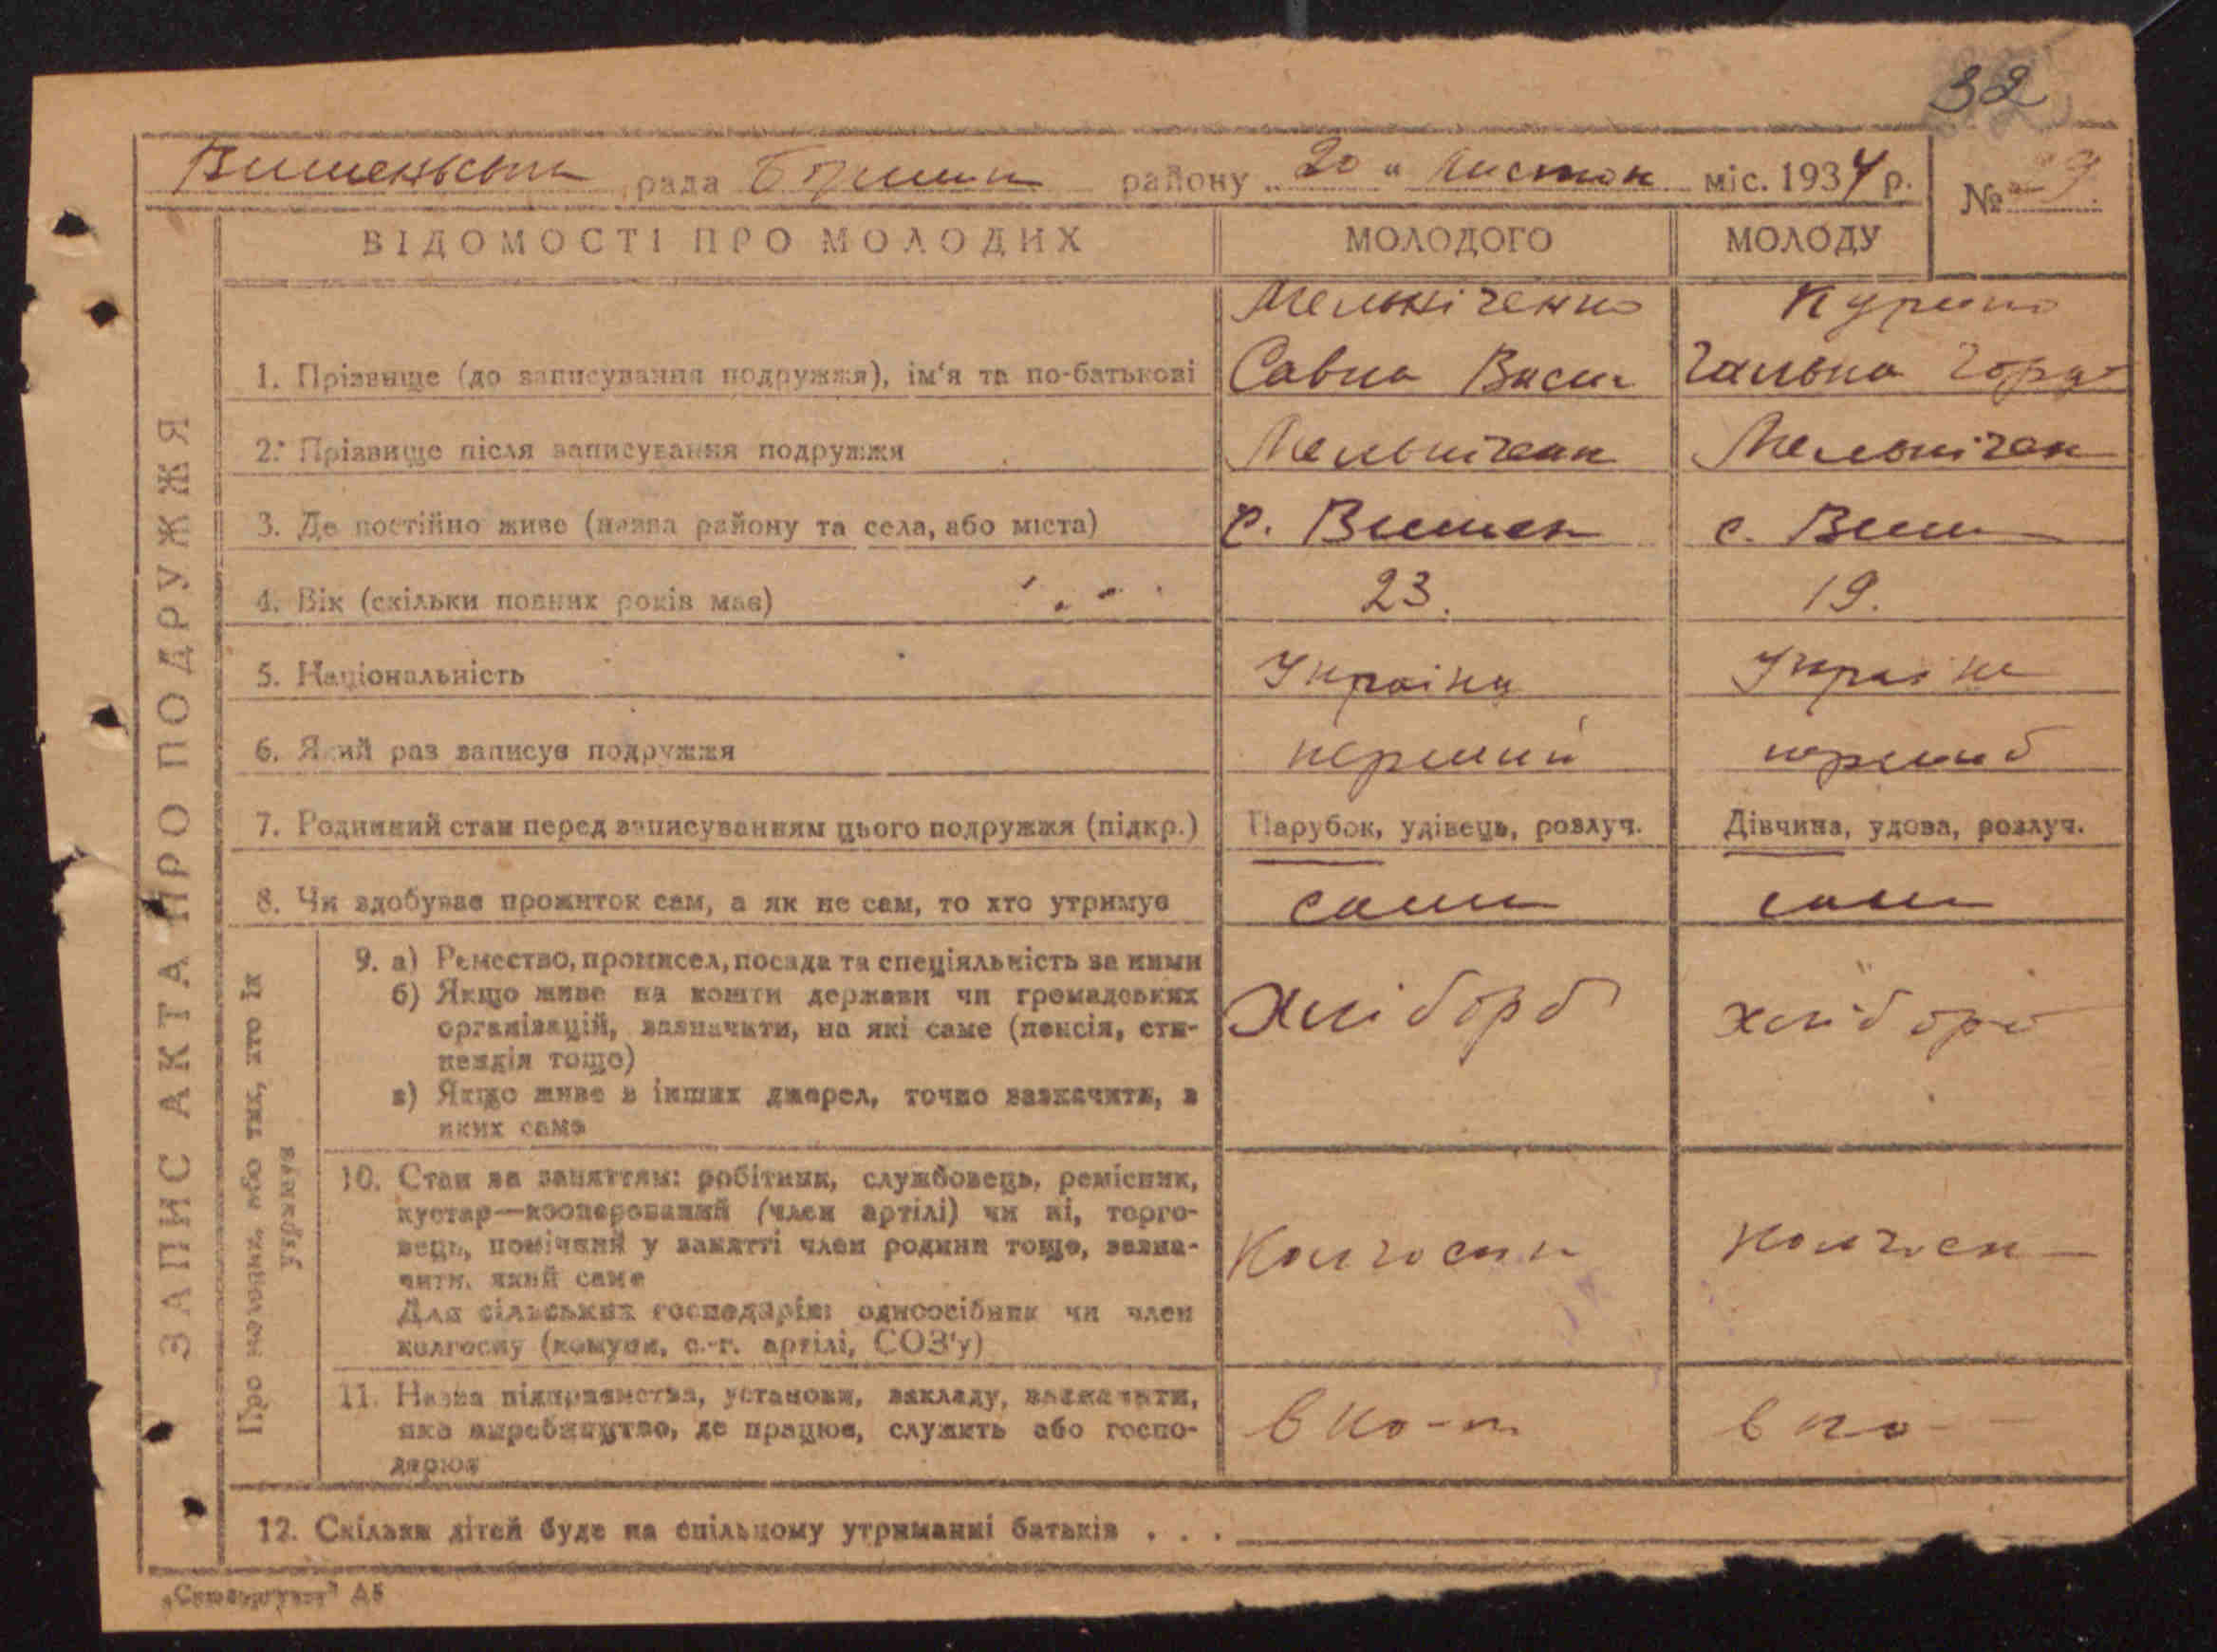 32
Вишенська рада району „20“ Листоп міс. 1934 р.
№ 9
ВІДОМОСТІ ПРО МОЛОДИХ МОЛОДОГО МОЛОДУ
ЗАПИС АКТА ПРО ПОДРУЖЖЯ
Мельніченко
1. Прізвище (до записування подружжя), ім'я та по-батькові Савка Васил Галька
2. Прізвище після записування подружжя Мельнічен Мельнічен
3. Де постійно живе (назва району та села, або міста) с. Вишен с. Виш
4. Вік (скільки повних років має) 23. 19.
5. Національність Україн Україн
6. Який раз записує подружжя перший перший
7. Родинний стан перед записуванням цього подружжя (підкр.) Парубок, удівець, розлуч. Дівчина, удова, розлуч.
8. Чи здобуває прожиток сам, а як не сам, то хто утримує сами сами
Про молодих, або тих, хто їх утримує
9. а) Ремество, промисел, посада та спеціяльність за ними
б) Якщо живе на кошти держави чи громадських
організацій, зазначити, на які саме (пенсія, сти-
пендія тощо)
в) Якщо живе з інших джерел, точно зазначити, з
яких саме
Хлібороб хлібороб
10. Стан за заняттям: робітник, службовець, ремісник,
кустар—кооперований (член артілі) чи ні, торго-
вець, помічний у занятті член родини тощо, зазна-
чити, який саме
Для сільських господарів: одноосібник чи член
колгоспу (комуни, с.-г. артілі, СОЗ'у)
Колгосп колгосп
11. Назва підприємства, установи, закладу, зазначити,
яке виробництво, де працює, служить або госпо-
дарює
в ко- в ко-
12. Скільки дітей буде на спільному утриманні батьків . . .